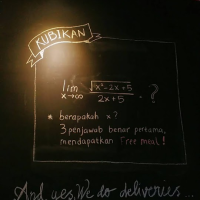 KUBIKAN
lim x→∞ √x²-2x+5 / 2x+5 . ?
* berapakah x?
3 penjawab benar pertama,
mendapatkan Free meal!
And yes, We do deliveries...